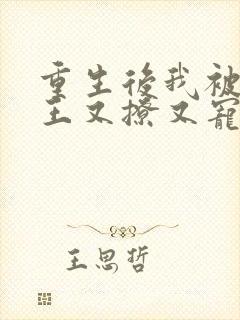 重生後我被
王又撩又寵
王思哲